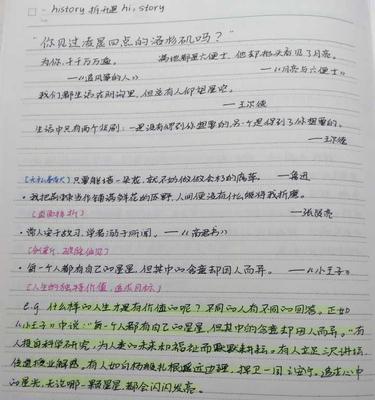 history 拆开是 hi, story
"你见过凌晨四点的洛杉矶吗？"
为你,千千万万遍。 满地都是六便士,他却抬头看见了月亮。
——《追风筝的人》 ——《月亮与六便士》
我们都生活在阴沟里,但总有人仰望星空。
——王尔德
生活中只有两个悲剧:一是没有得到你想要的,另一个是得到了你想要的。
——王尔德
只要能培一朵花,就不妨做做会朽的腐草。 ——鲁迅
· 我把荆棘当作铺满鲜花的原野,人间便没有什么能将我折磨。
[直面挫折] ——张
· 常人安于故习,学者溺于所闻。 ——《商君书》
[创新、破除偏见]
· 每一个人都有自己的星星,但其中的含意却因人而异。 ——《小王子》
[人生的独特价值,追求目标]
e.g. 什么样的人生才是有价值的呢？不同的人有不同的回答。正如
《小王子》中说:"每一个人都有自己的星星,但其中的含意却因人而异。"有
人投身科学研究,为人类的未来和福祉而默默耕耘。有人立足三尺讲坛,
传道授业解惑。有人如白杨般扎根遥远边疆,捍卫一闾宁。追求心中
的星光,无论哪一颗星星,都会闪闪发亮。